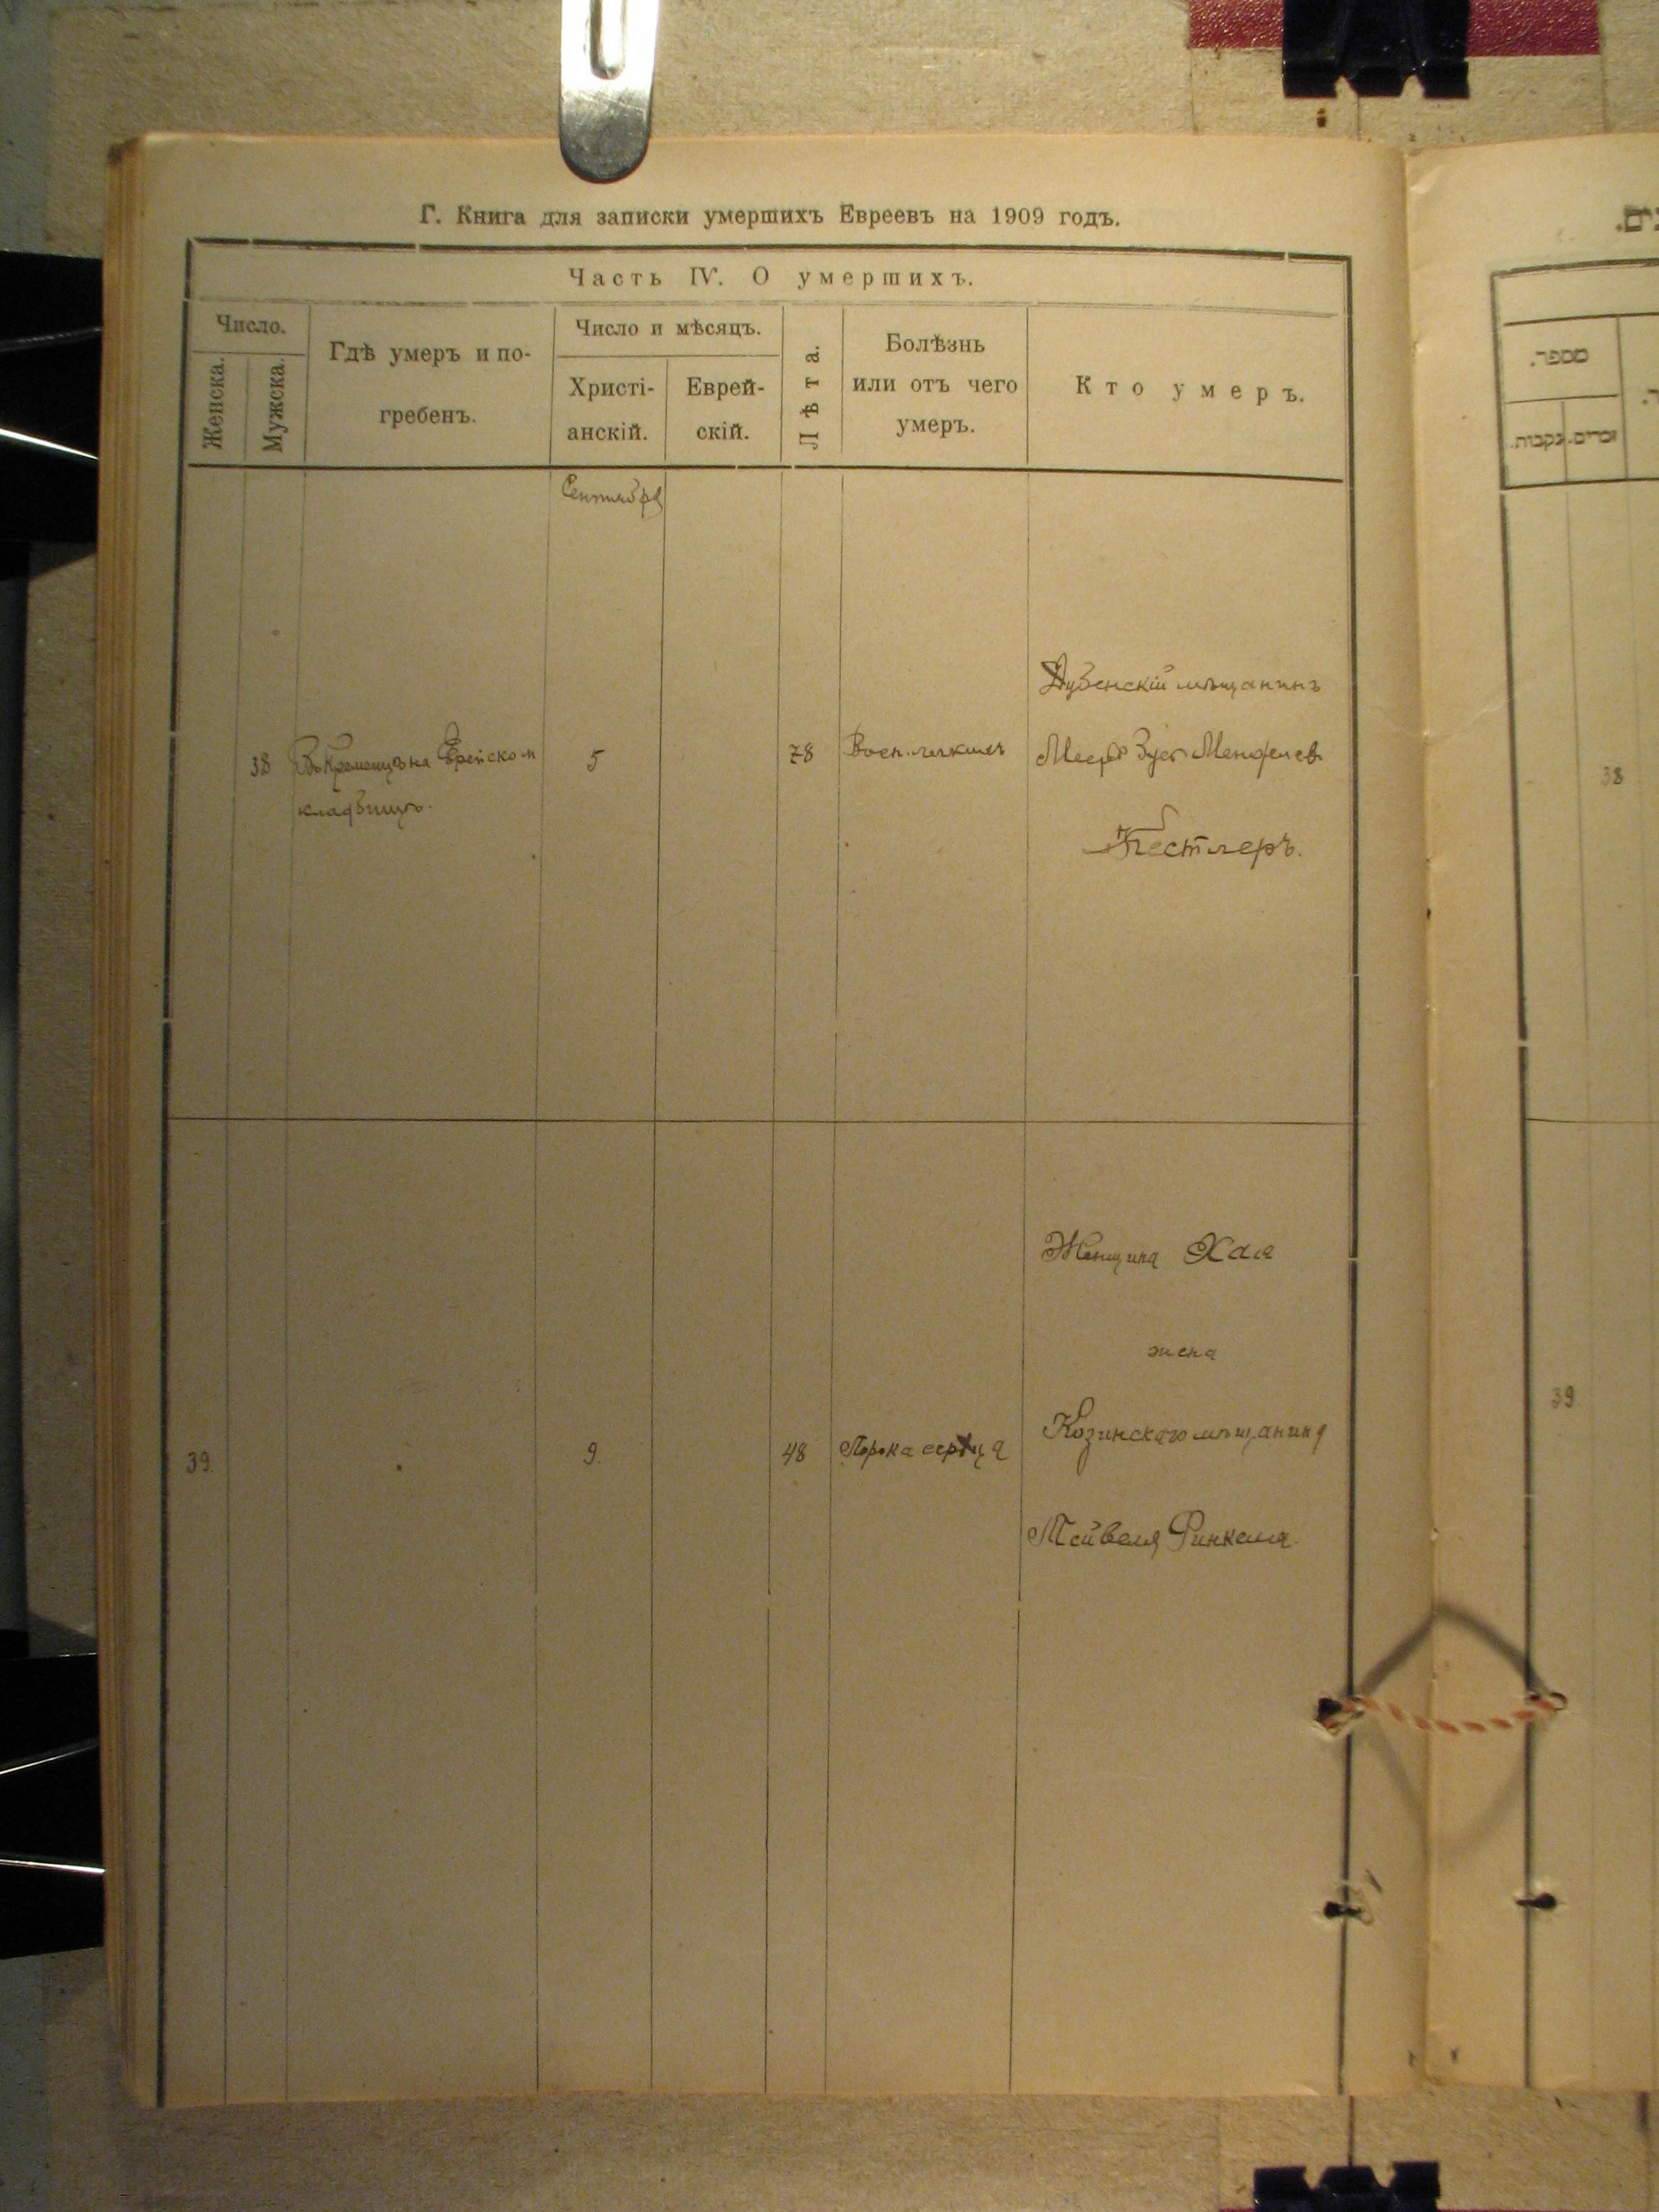 Г. Книга для записки умершихъ Евреевъ на 1909 годъ.
Часть IV. О умершихъ.
Число.
Женска.
Мужска.
Гдѣ умеръ и по-
гребенъ.
Число и мѣсяцъ.
Христі-
анскій.
Еврей-
скій.
Лѣта.
Болѣзнь
или отъ чего
умеръ.
Кто умеръ.
Сентября
Дубенскій мѣщанинъ
38 Въ Кременцѣ на 5 78 Зусь Менделев
кладбищѣ.
Кестлеръ.
Женщина Хая
жена
Козинскаго мѣщанина
39 9. 48 Порока сердца
Тейвеля Финкеля.
מספר.
זכרים.
נקבות.
38
39